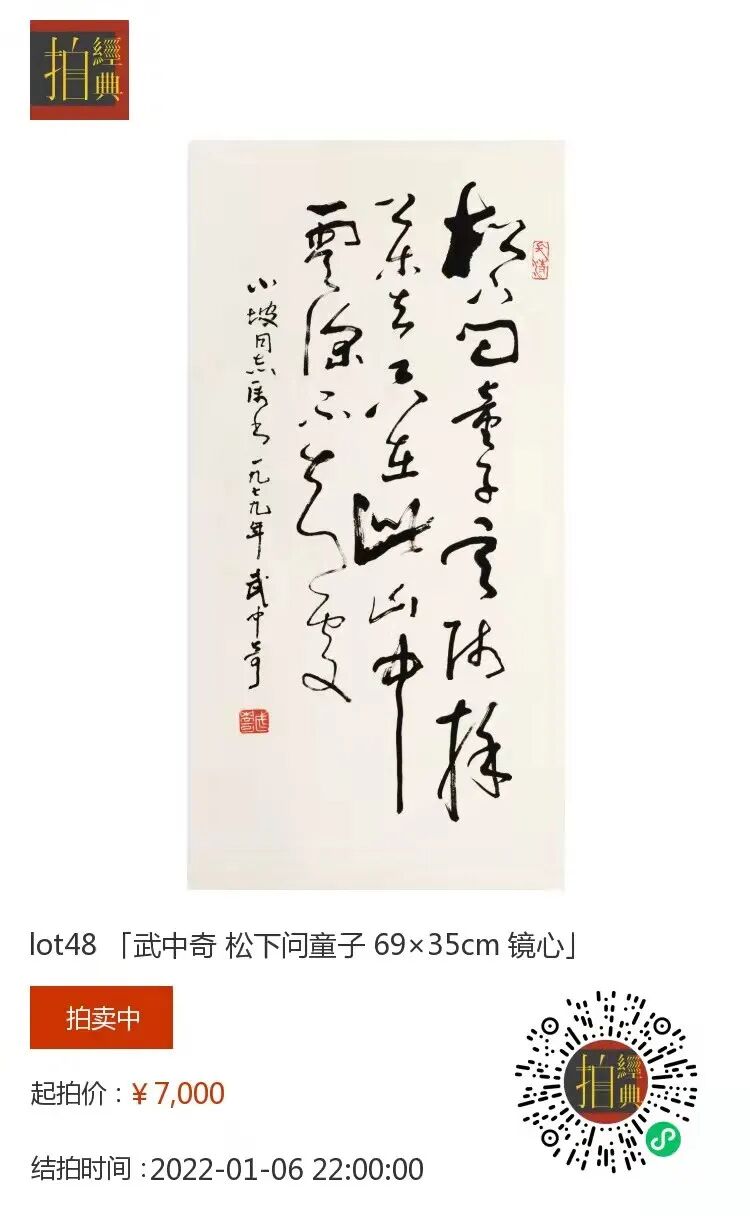 拍經典
松下問童子言师採
药去只在此山中
雲深不知處
小坡同志属书 一九七九年 武中奇
lot48 「武中奇 松下问童子 69×35cm 镜心」
拍卖中
起拍价：¥ 7,000
结拍时间：2022-01-06 22:00:00
拍經典